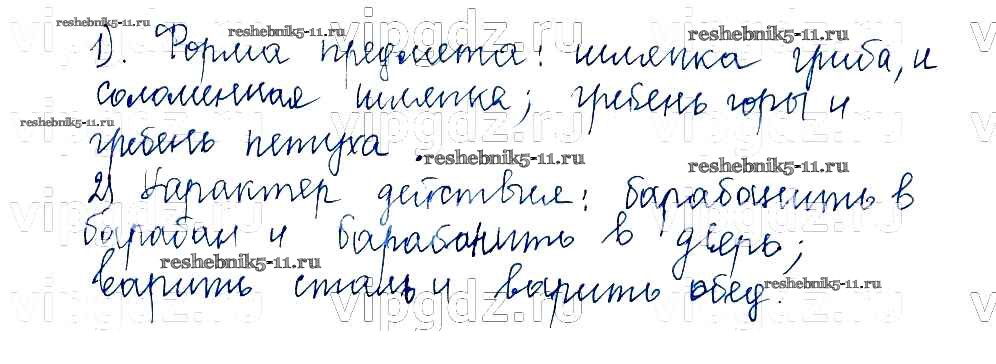 1). Форма предмета: шляпка гриба, и
соломенная шляпка; гребень горы и
гребень петуха.
2) Характер действия: барабанить в
барабан и барабанить в дверь;
варить сталь и варить обед.
reshebnik5-11.ru
reshebnik5-11.ru
reshebnik5-11.ru
reshebnik5-11.ru
reshebnik5-11.ru
reshebnik5-11.ru
reshebnik5-11.ru
reshebnik5-11.ru
vipgdz.ru
vipgdz.ru
vipgdz.ru
vipgdz.ru